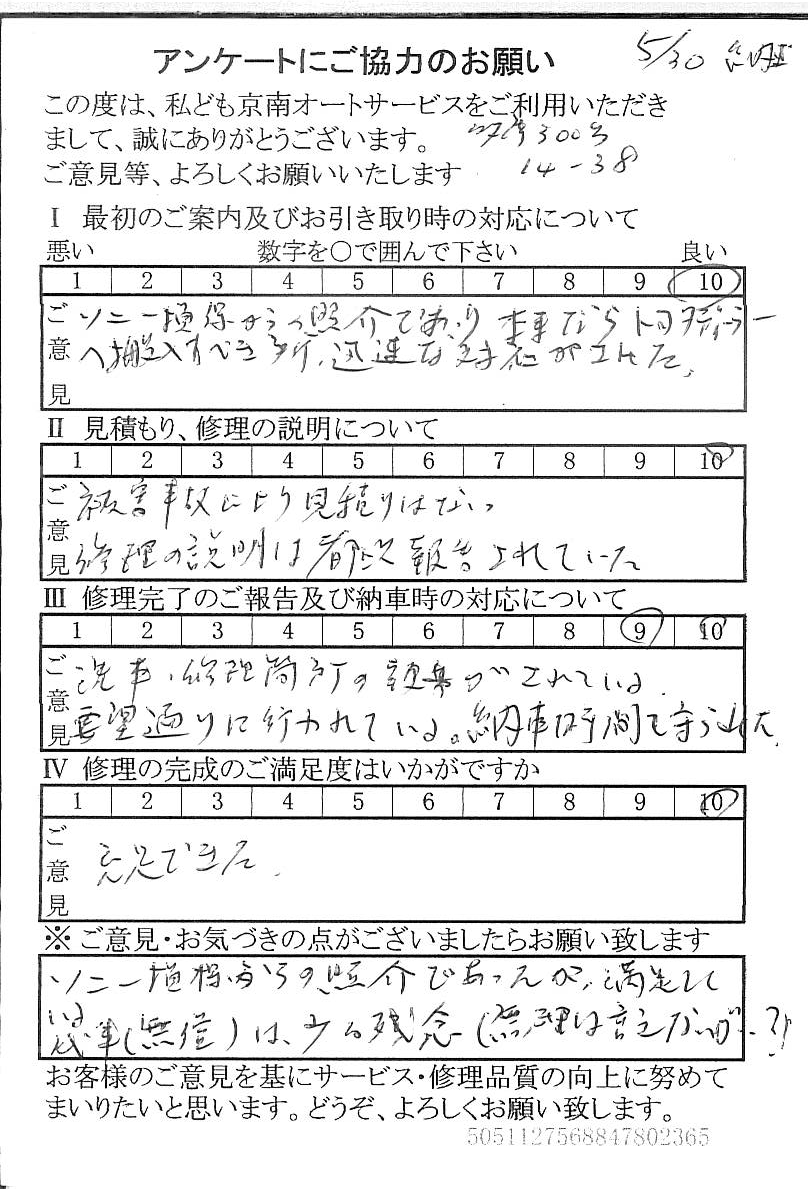 アンケートにご協力のお願い
5/30 納車
この度は、私ども京南オートサービスをご利用いただき
まして、誠にありがとうございます。 300
ご意見等、よろしくお願いいたします 14-38
Ⅰ 最初のご案内及びお引き取り時の対応について
悪い 数字を〇で囲んで下さい 良い
1 2 3 4 5 6 7 8 9 10
ご意見
ソニー損保からの照介であり 本来ならトヨタディーラー
へ搬入すべき所、迅速な対応がされた。
Ⅱ 見積もり、修理の説明について
1 2 3 4 5 6 7 8 9 10
ご意見
被害事故により見積りはない
修理の説明は都度報告されていた
Ⅲ 修理完了のご報告及び納車時の対応について
1 2 3 4 5 6 7 8 9 10
ご意見
洗車、修理箇所の がされている。
要望通りに行われている。納車時間も守られた。
Ⅳ 修理の完成のご満足度はいかがですか
1 2 3 4 5 6 7 8 9 10
ご意見
満足できた。
※ ご意見・お気づきの点がございましたらお願い致します
ソニー損保からの照介であったが、満足して
いる
代車(無償)は、少々残念(無理は言えないが…?)
お客様のご意見を基にサービス・修理品質の向上に努めて
まいりたいと思います。どうぞ、よろしくお願い致します。
5051127568847802365